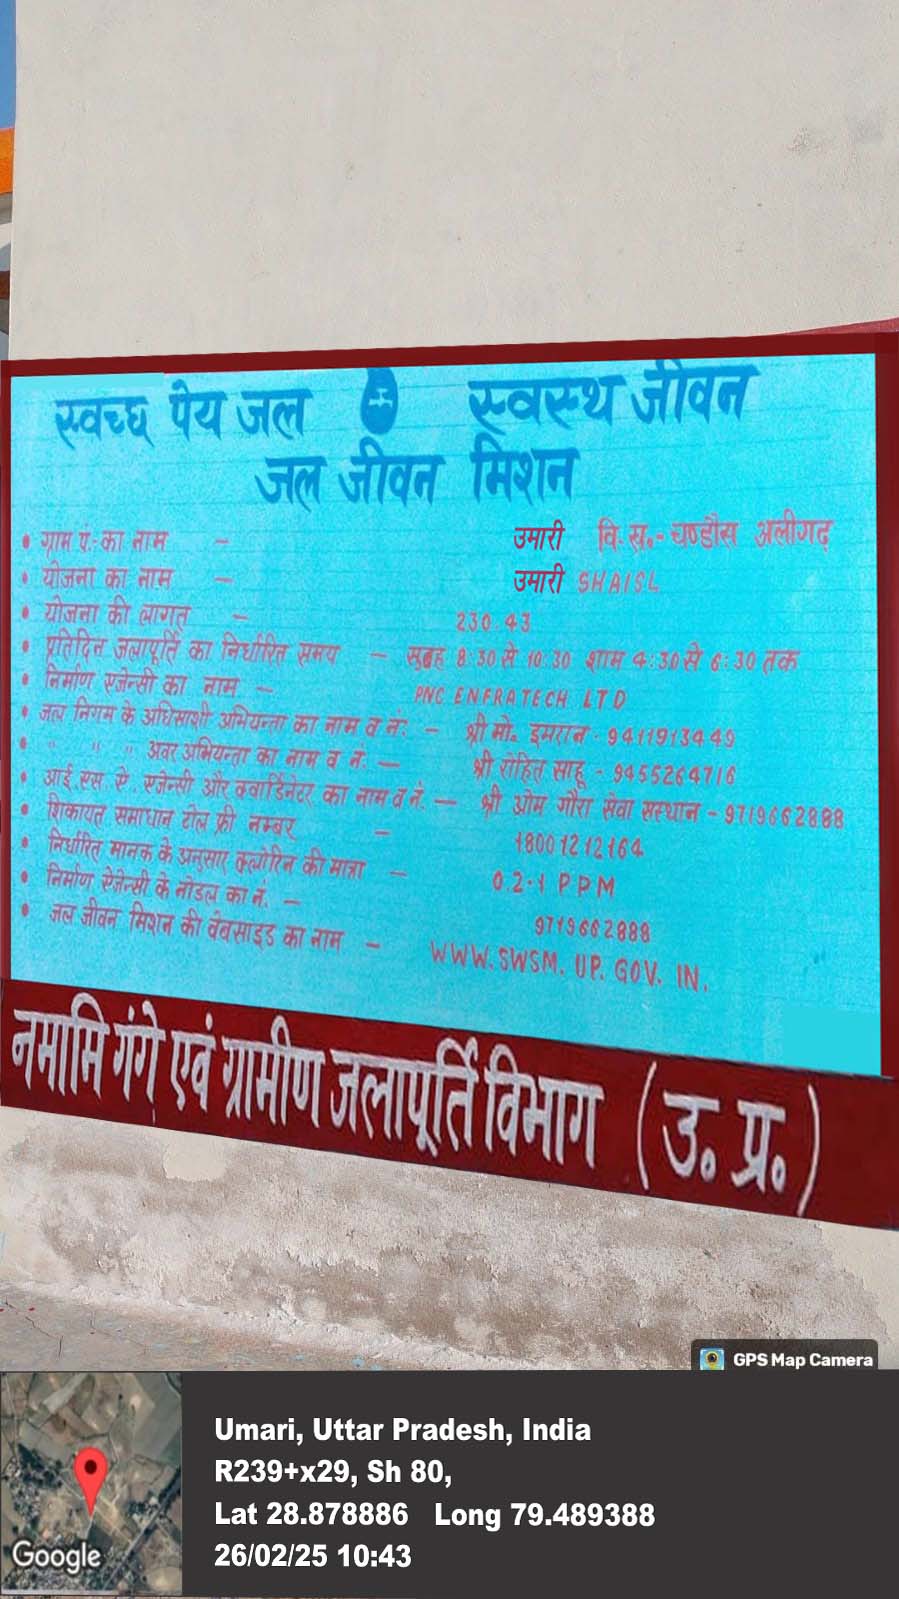 स्वच्छ पेय जल स्वस्थ जीवन
जल जीवन मिशन
• ग्राम पं.-का नाम - उमारी वि.ख.- चण्डौस अलीगढ़
• योजना का नाम - उमारी SHAISL
• योजना की लागत - 230.43
• प्रतिदिन जलापूर्ति का निर्धारित समय - सुबह 8:30 से 10:30 शाम 4:30 से 6:30 तक
• निर्माण एजेन्सी का नाम - PNC ENFRATECH LTD
• जल निगम के अधिसाशी अभियन्ता का नाम व नं: - श्री मो. इमरान - 9411913449
• " " " अवर अभियन्ता का नाम व नं: - श्री रोहित साहू - 9455264716
• आई.एस.ऐ. एजेन्सी और क्वार्डिनेटर का नाम व नं. - श्री ओम गौरा सेवा सस्थान - 9719662888
• शिकायत समाधान टोल फ्री नम्बर - 18001212164
• निर्धारित मानक के अनुसार क्लोरिन की मात्रा - 0.2-1 PPM
• निर्माण ऐजेन्सी के नोडल का नं. - 9719662888
• जल जीवन मिशन की वेबसाइड का नाम - WWW.SWSM.UP.GOV.IN.
नमामि गंगे एवं ग्रामीण जलापूर्ति विभाग (उ. प्र.)
GPS Map Camera
Umari, Uttar Pradesh, India
R239+x29, Sh 80,
Lat 28.878886 Long 79.489388
26/02/25 10:43
Google